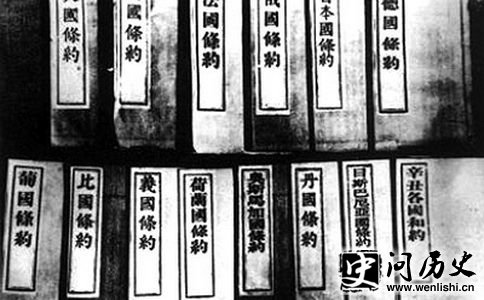 國條約
國條約
法國條約
俄國條約
日本國條約
德國條約
葡國條約
比國條約
義國條約
荷蘭國條約
奧斯馬加國條約
丹國條約
日斯巴尼亞國條約
辛丑各國和約
史问历史
www.wenlishi.cn